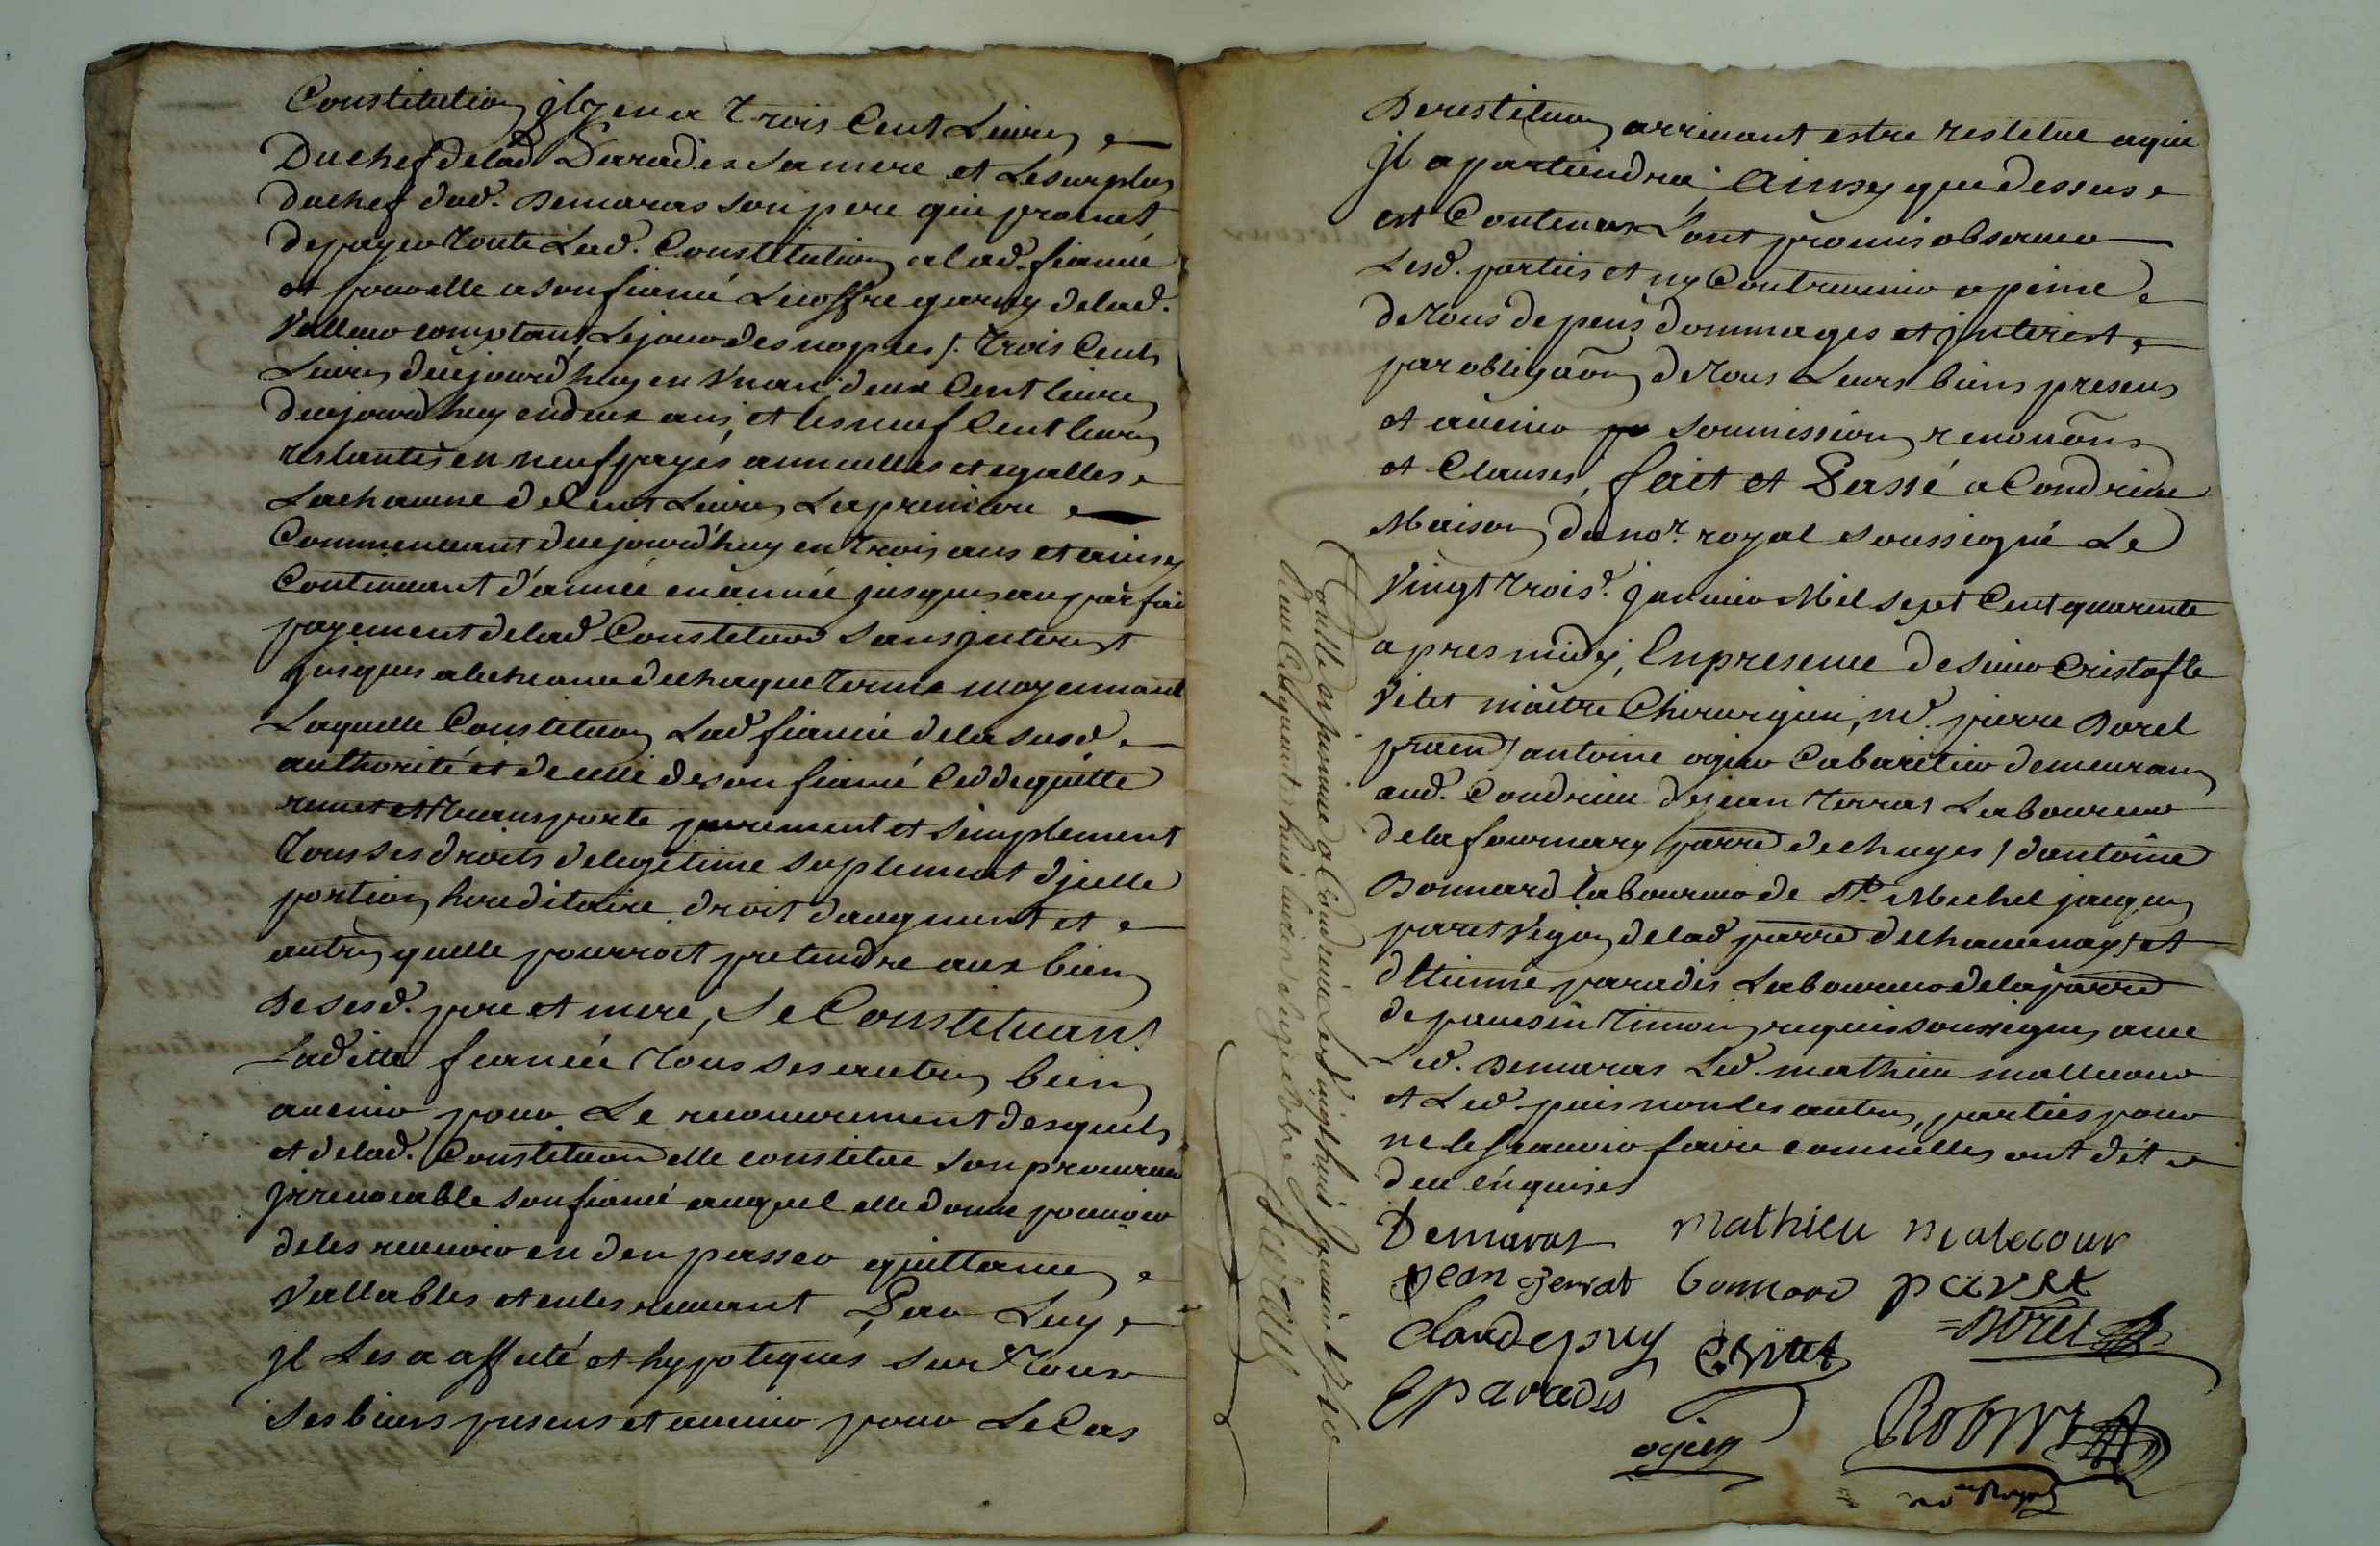 Constitution jl y en a trois Cent Livres
Du chef de lad Paradis sa mere et Le surplus
du chef dud. Demaras son pere qui promet
de payer toute Lad. Constitution a lad. fiancée
et pour elle a son fiancé Le coffre garny de lad.
Valleur comptant Le jour des nopces /. trois Cents
Livres d'uejourd'huy en Vn an deux Cent livres
duejourd'huy en deux ans, et les neuf Cent livres
restantes en neuf payes annuelles et egalles
La chacune de Cent Livres La premiere
Commencant duejourd'huy en trois ans et ainsy
Continuant d'année en année jusques au parfait
payement de lad Constitution sans jnterest
jusques a lecheance de chaque terme moyennant
Laquelle Constitution Lad fiancée de la susd
authorité et de celle de son fiancé Cedde quitte
remet et transporte purement et simplement
tous ses droits de legitime suplement d'jcelle
portion hereditaire droit daugment et
autres quelle pourroit pretendre aux biens
De sesd. pere et mere, Se Constituant
Laditte fiancée tous ses autres biens
avenir pour Le recouvrement desquels
et de lad. Constitution elle constitue son procureur
jrrevocable son fiancé auquel elle donne pouvoir
de les recevoir en d'en passer quittances
Vallables et en les recevant Par Luy
jl Les a affecté et hypotequés sur tous
ses biens presens et avenir pour Le Cas
De restitution arrivant estre restitué a qui
jl apartiendra, Ainsy que dessus
est Contenu L'ont promis observer
Lesd. parties et ny Contrevenir a peine
de tous depens dommages et jnterest
par obligaõn de tous Leurs biens presens
et avenir soumission renonõns
et Clauses, fait et Passé a Condrieu
Maison du nor. royal soussigné Le
Vingt trois. janvier Mil sept Cent quarente
apres midy, En presence de sieur Cristofle
Vitet maitre Chirurgien, me. pierre Borel
praen / antoine ogier Cabaretier demeurans
aud. Condrieu de jean terrat Laboureur
de la fournary parre de chuyes / d'antoine
Bonnard laboureur de St. Michel jaques
paret Vigon de lad parre de chavanay / et
d'Etienne paradis Laboureur de la parre
de pavesin temoins requis soussignes avec
Led. Demaras Led. mathieu mallecour
et Led puis non les autres, parties pour
ne le scavoir faire comme elles ont dit
deu enquises
Demaras Mathieu malecour
Jean Terrat bonnard paret
Claude puy C Vitet Borel
E paradis
ogier Robin
no re Royal
Controllé a Condrieu Le Vingt huit Janvier 1740